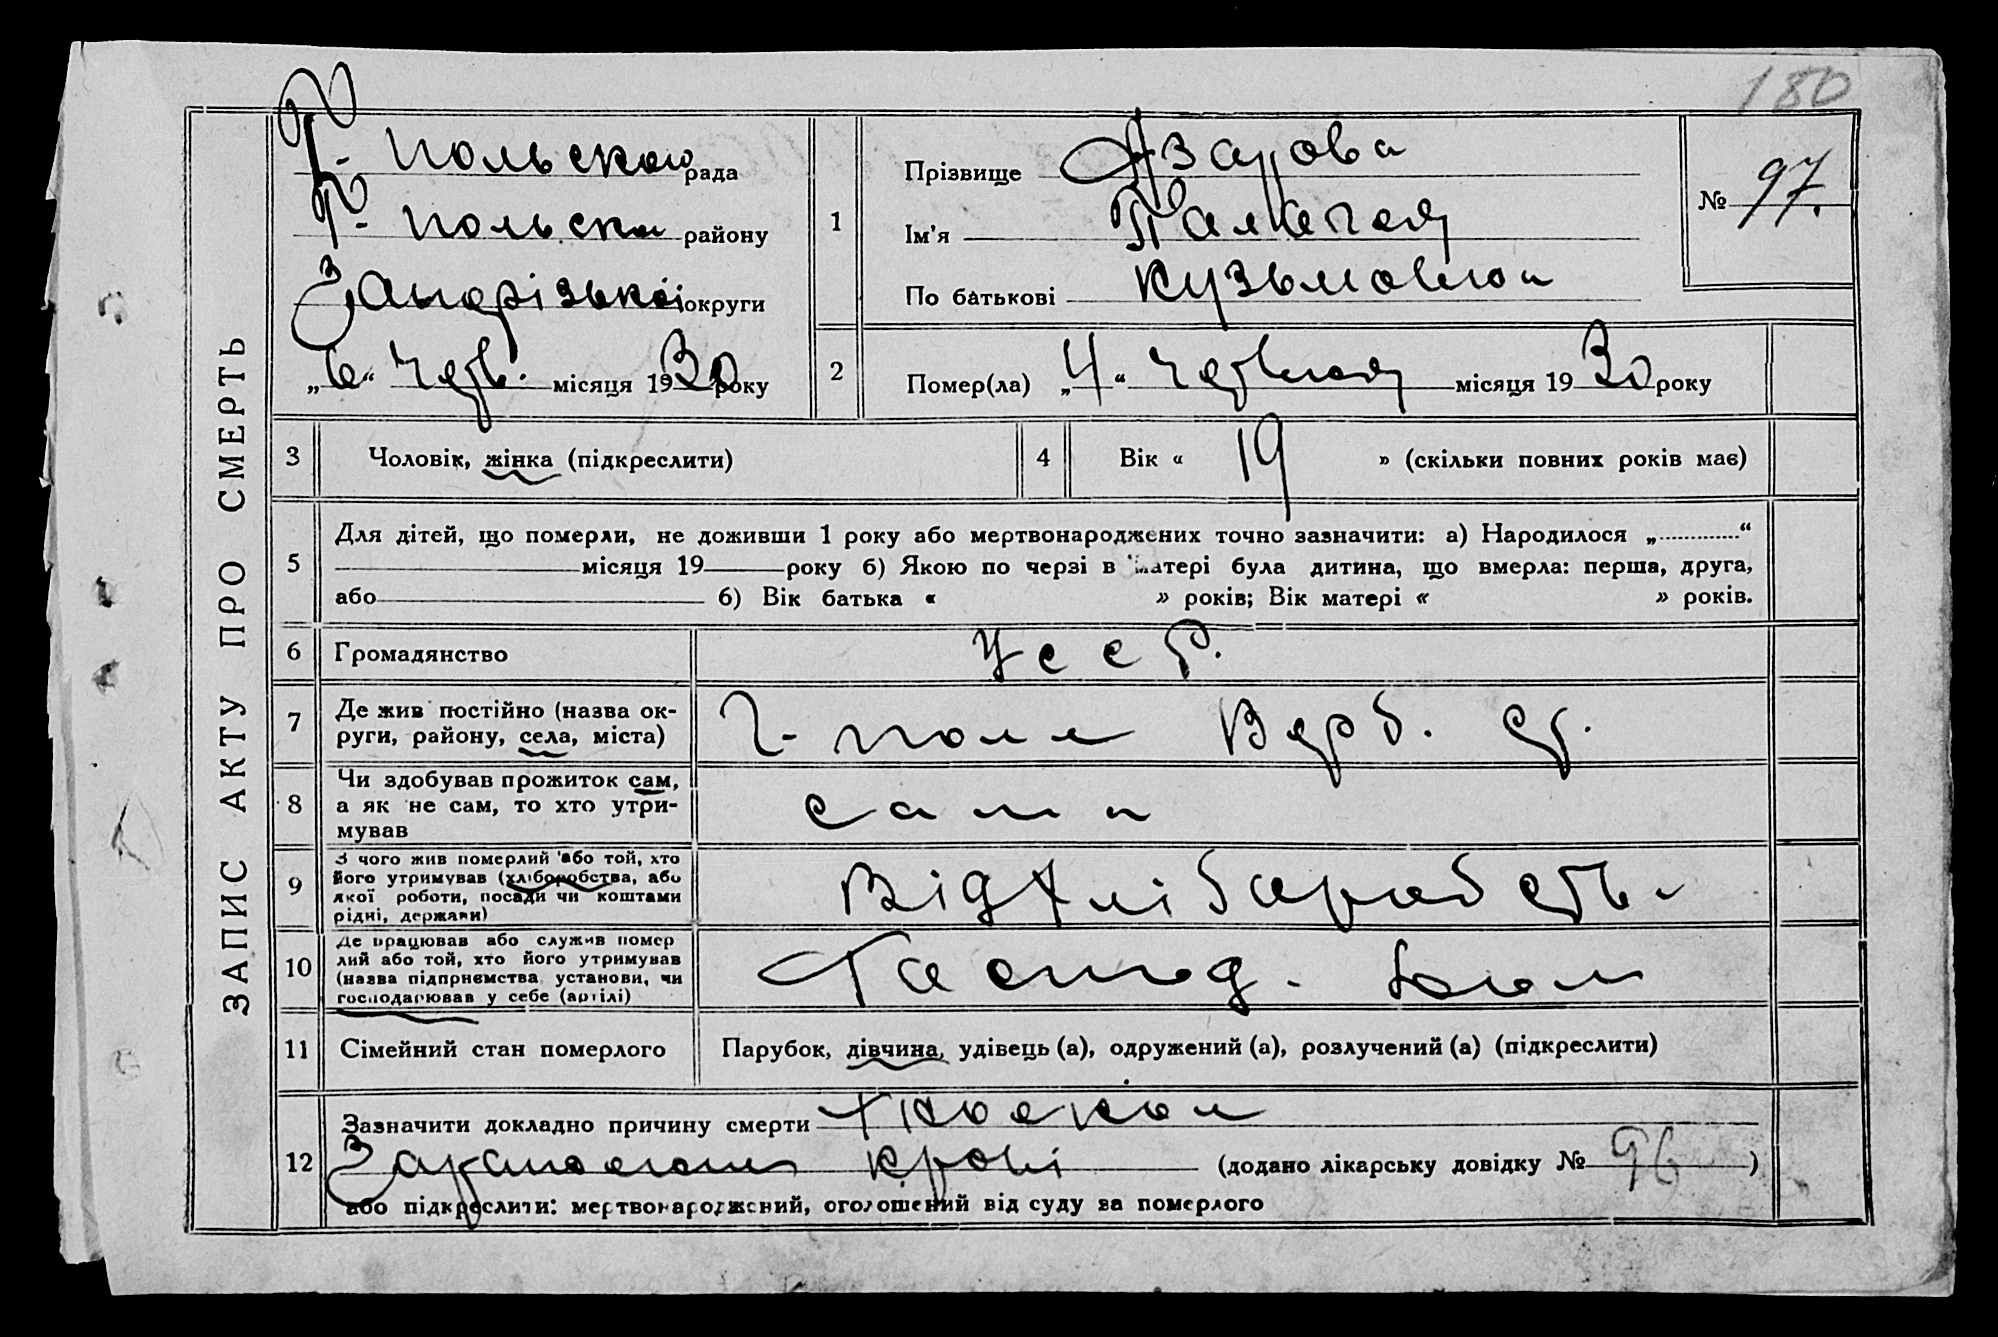 180
ЗАПИС АКТУ ПРО СМЕРТЬ
Г-польского рада
Г-польска району
Запорізької округи
„6“ черв. місяця 1930 року
1
Прізвище Азарова
Ім'я
По батькові Кузьмовна
№ 97.
2
Помер(ла) „4“ червня місяця 1930 року
3 Чоловік, жінка (підкреслити)
4 Вік « 19 » (скільки повних років має)
5
Для дітей, що померли, не доживши 1 року або мертвонароджених точно зазначити: а) Народилося „ “
місяця 19 року б) Якою по черзі в матері була дитина, що вмерла: перша, друга,
або б) Вік батька « » років; Вік матері « » років.
6 Громадянство УССР.
7 Де жив постійно (назва ок-
руги, району, села, міста)
Г-поле Верб. ст.
8 Чи здобував прожиток сам,
а як не сам, то хто утри-
мував
сама
9 З чого жив померлий або той, хто
його утримував (хліборобства, або
якої роботи, посади чи коштами
рідні, держави)
Від хліборобств
10 Де працював або служив помер
лий або той, хто його утримував
(назва підприємства, установи, чи
господарював у себе (артілі)
Господ.
11 Сімейний стан померлого
Парубок, дівчина, удівець (а), одружений (а), розлучений (а) (підкреслити)
12 Зазначити докладно причину смерти
крові (додано лікарську довідку № 96 )
або підкреслити: мертвонароджений, оголошений від суду за померлого